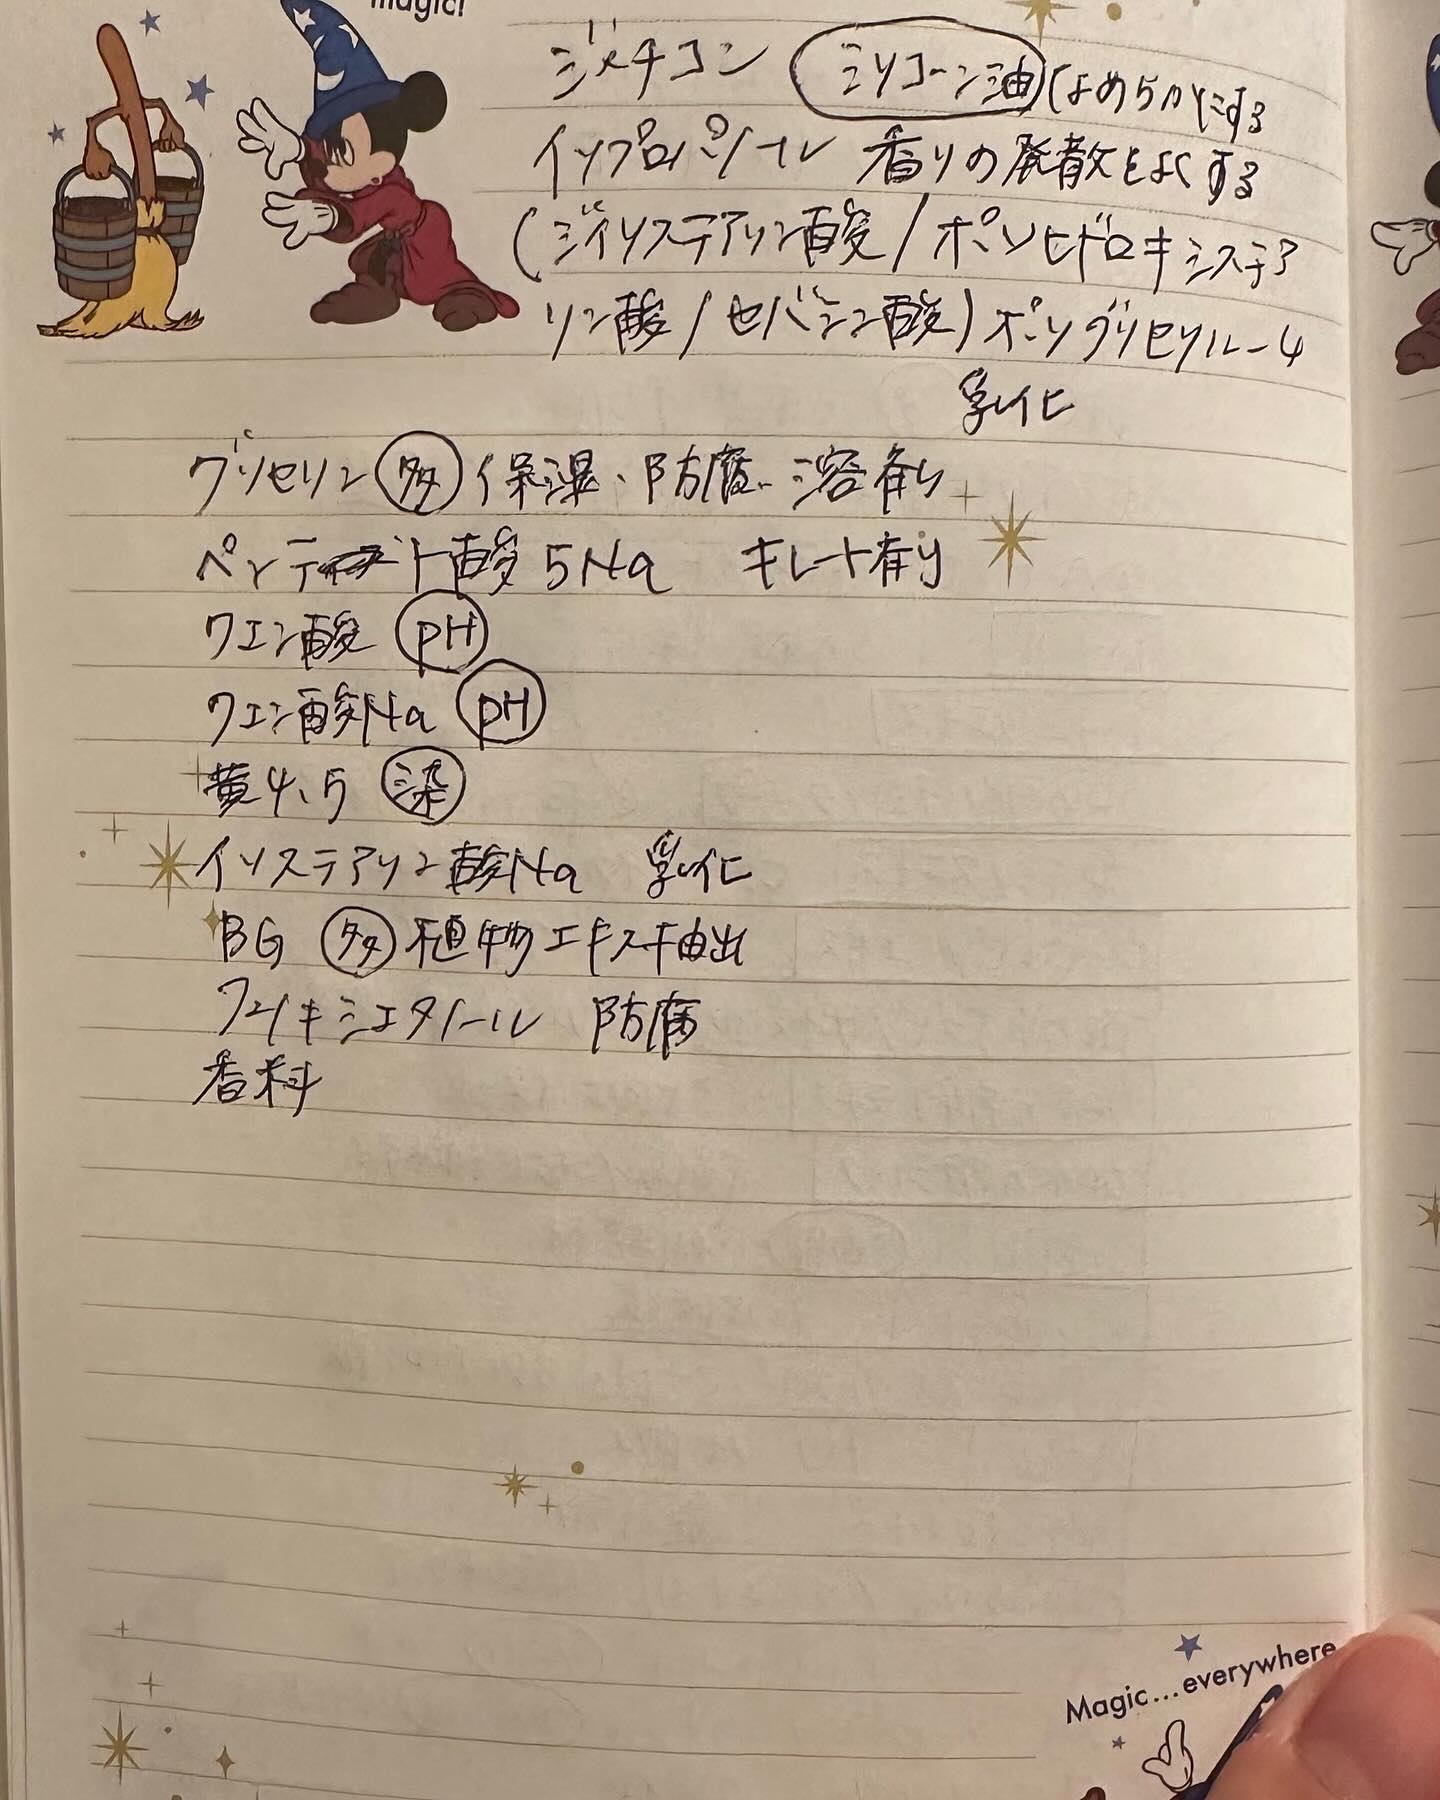 magic!
ジメチコン シリコーン油 なめらかにする
イソプロパノール 香りの発散をよくする
(ジイソステアリン酸/ポリヒドロキシステア
リン酸/セバシン酸)ポリグリセリル-4
乳化
グリセリン 多 保湿、防腐、溶剤
ペンテト酸5Na キレート有り
クエン酸 pH
クエン酸Na pH
黄4、5 染
イソステアリン酸Na 乳化
BG 多 植物エキス抽出
フェノキシエタノール 防腐
香料
Magic...everywhere